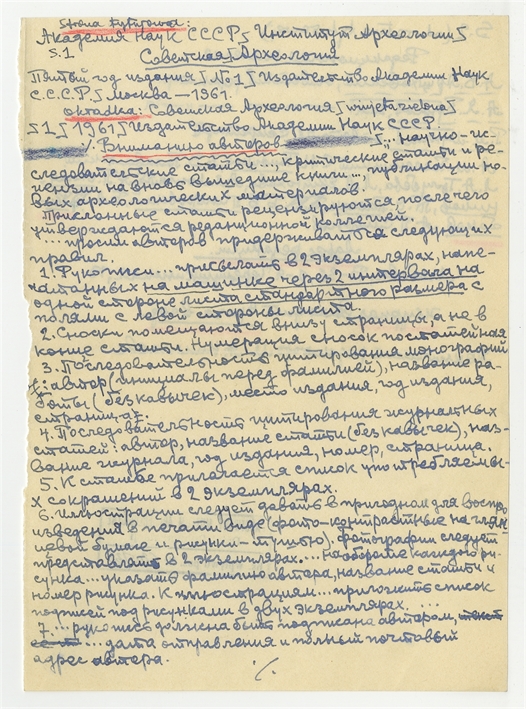 Strona tytułowa:
Академия Наук СССР ⌈ Институт Археологии ⌈
S.1 Советская ⌈ Археология
Пятый год издания ⌈ №1 ⌈ Издательство Академии Наук
С.С.С.Р. ⌈ Москва – 1961.
Okładka: Советская Археология ⌈ winjeta zielona ⌈
⌈1⌈ 1961 ⌈ Издательство Академии Наук СССР.
/. Вниманию авторов ⌈... научно-ис-
следовательские статьи ..., критические статьи и ре-
цензии на вновь вышедшие книги ..., публикации но-
вых археологических материалов.
Присланные статьи рецензируются, после чего
утверждаются редакционной коллегией.
... просит авторов придерживаться следующих
правил.
1. Рукописи ... присылать в 2 экземплярах, напе-
чатанных на машинке через 2 интервала на
одной стороне листа стандартного размера с
полями с левой стороны листа.
2. Сноски помещаются внизу страницы, а не в
конце статьи. Нумерация сносок постатейная
3. Последовательность цитирования монографий
: автор (инициалы перед фамилией), название ра-
боты (без кавычек), место издания, год издания,
страница.
4. Последовательность цитирования журнальных
статей: автор, название статьи (без кавычек), наз-
вание журнала, год издания, номер, страница.
5. К статье прилагается список употребляемы-
х сокращений в 2 экземплярах.
6. Иллюстрации следует давать в пригодном для воспро
изведения в печати виде (фото-контрастные на глян
цевой бумаге и рисунки – тушью). Фотографии следует
представлять в 2 экземплярах. ... на обороте каждого ри-
сунка ... указать фамилию автора, название статьи и
номер рисунка. К иллюстрациям ... приложить список
подписей под рисунками в двух экземплярах. ...
7. ... рукопись должна быть подписана автором,
... дата отправления и полный почтовый
адрес автора.
./.